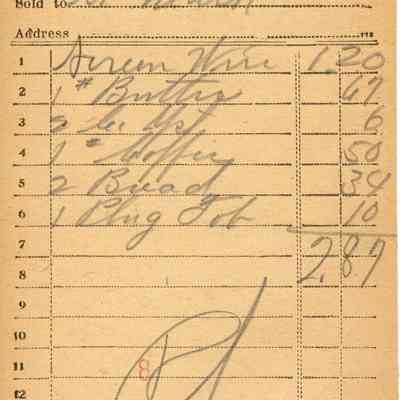 Sold to
Address
1 Screen Wire 1.20
2 1 # Butter 67
3 2 6
4 1 # Coffee 50
5 2 Bread 34
6 1 Plug Tob 10
7 2.87
8
9
10
11 8
12